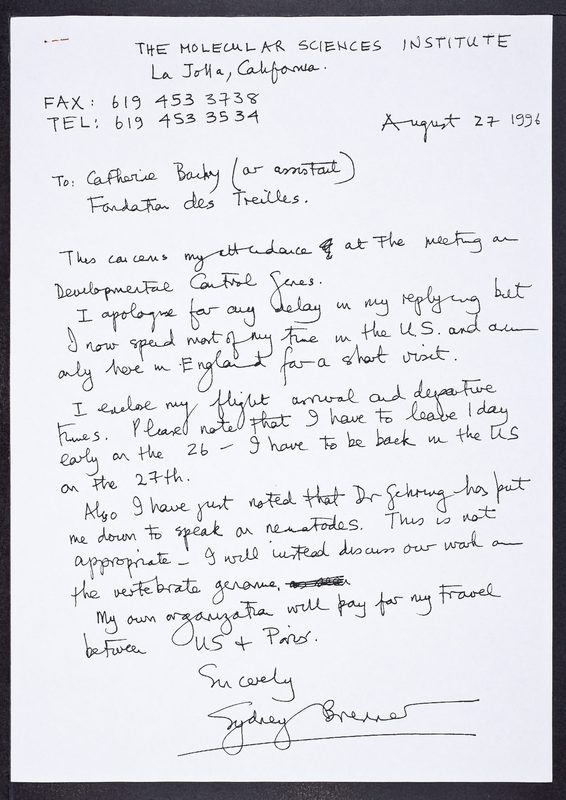 THE MOLECULAR SCIENCES INSTITUTE
La Jolla, California.
FAX: 619 453 3738
TEL: 619 453 3534
August 27 1996
To: Catherine Bachy (or assistant)
Fondation des Treilles.
This concerns my attendance at the meeting on
Developmental Control Genes.
I apologise for any delay in my replying but
I now spend most of my time in the U.S. and am
only here in England for a short visit.
I enclose my flight arrival and departure
times. Please note that I have to leave 1 day
early on the 26 - I have to be back in the US
on the 27th.
Also I have just noted that Dr Gehring has put
me down to speak on nematodes. This is not
appropriate - I will instead discuss our work on
the vertebrate genome.
My own organization will pay for my travel
between US + Paris.
Sincerely
Sydney Brenner